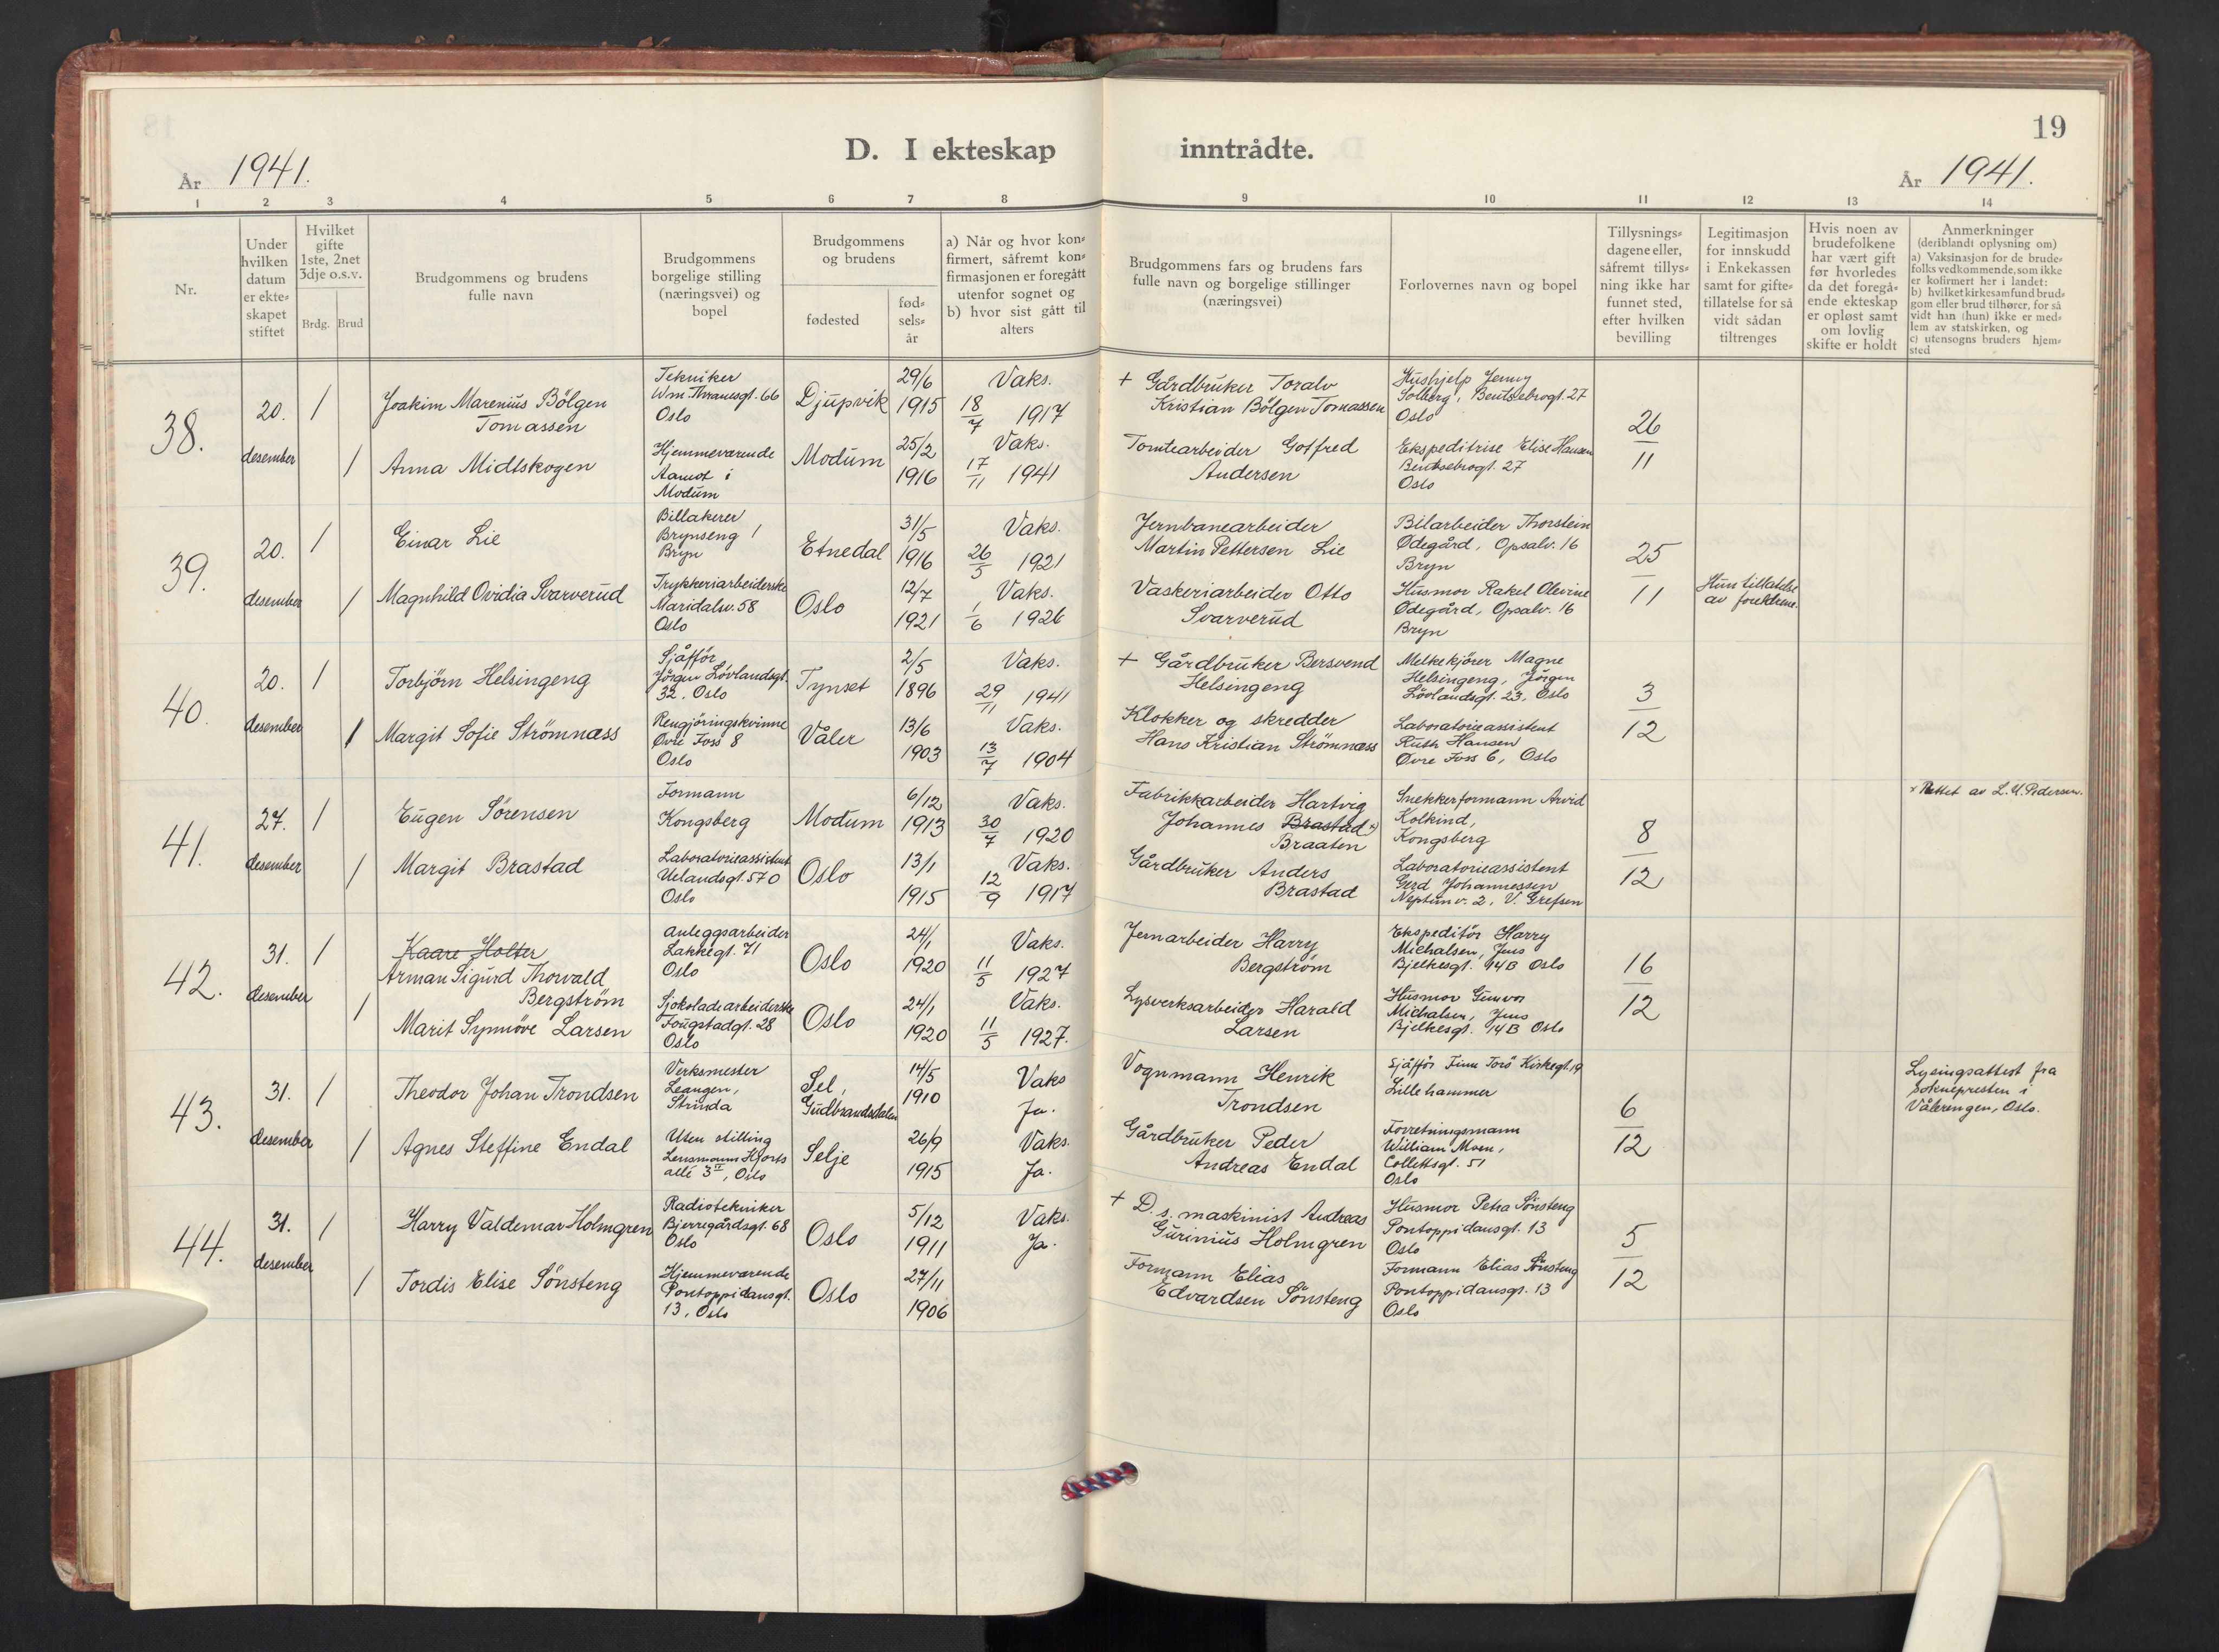 19
D. I ekteskap inntrådte.
År 1941.
År 1941.
1 2 3 4 5 6 7 8 9 10 11 12 13 14
Nr.
Under
hvilken
datum
er ekte=
skapet
stiftet
Hvilket
gifte
1ste, 2net
3dje o.s.v.
Brdg. Brud
Brudgommens og brudens
fulle navn
Brudgommens
borgelige stilling
(næringsvei) og
bopel
Brudgommens
og brudens
fødested
fød=
sels=
år
a) Når og hvor kon=
firmert, såfremt kon=
firmasjonen er foregått
utenfor sognet og
b) hvor sist gått til
alters
Brudgommens fars og brudens fars
fulle navn og borgelige stillinger
(næringsvei)
Forlovernes navn og bopel
Tillysnings=
dagene eller,
såfremt tillys=
ning ikke har
funnet sted,
efter hvilken
bevilling
Legitimasjon
for innskudd
i Enkekassen
samt for gifte=
tillatelse for så
vidt sådan
tiltrenges
Hvis noen av
brudefolkene
har vært gift
før hvorledes
da det foregå=
ende ekteskap
er opløst samt
om lovlig
skifte er holdt
Anmerkninger
(deriblandt oplysning om)
a) Vaksinasjon for de brude=
folks vedkommende, som ikke
er kofirmert her i landet;
b) hvilket kirkesamfund brud=
gom eller brud tilhører, for så
vidt han (hun) ikke er med=
lem av statskirken, og
c) utensogns bruders hjem=
sted
38.
20.
desember
1
Joakim Marenius Bölgen
Tomassen
Tekniker
Wm. Thranesgt. 66
Oslo
Djupvik
29/6
1915
Vaks.
18/7 1917
+ Gårdbruker Toralv
Kristian Bölgen Tomassen
Hushjelp Jenny
Solberg, Bentsebrogt. 27
Oslo
26
11
1
Anna Midtskogen
Hjemmeværende
Aamot i
Modum
Modum
25/2
1916
Vaks.
17/11 1941
Tomtearbeider Gotfred
Andersen
Ekspeditrise Elise Hansen
Bentsebrogt. 27
Oslo
39.
20.
desember
1
Einar Lie
Billakerer
Brynseng 1
Bryn
Etnedal
31/5
1916
Vaks.
26/5 1921
Jernbanearbeider
Martin Pettersen Lie
Bilarbeider Thorstein
Ødegård, Opsalv. 16
Bryn
25
11
1
Magnhild Ovidia Svarverud
Trykkeriarbeiderske
Maridalsv. 58
Oslo
Oslo
12/7
1921
Vaks.
1/6 1926
Vaskeriarbeider Otto
Svarverud
Husmor Rakel Olevine
Ødegård, Opsalv. 16
Bryn
Hun tillatelse
av foreldrene.
40.
20.
desember
1
Torbjörn Helsingeng
Sjåffór
Jörgen Lövlandsgt.
32, Oslo
Tynset
2/5
1896
Vaks.
29/11 1941
+ Gårdbruker Bersvend
Helsingeng
Melkekjører Magne
Helsingeng, Jörgen
Lövlandsgt. 23, Oslo
3
12
1
Margit Sofie Strömnæss
Rengjöringskvinne
Øvre Foss 8
Oslo
Våler
13/6
1903
Vaks.
13/7 1904
Klokker og skredder
Hans Kristian Strömnæss
Laboratorieassistent
Ruth Hansen
Øvre Foss 6, Oslo
41.
27.
desember
1
Eugen Sörensen
Formann
Kongsberg
Modum
6/12
1913
Vaks.
30/7 1920
Fabrikkarbeider Hartvig
Johannes Brastad x)
Braaten
Snekkerformann Arvid
Kolkind,
Kongsberg
8
12
x Rettet av L. U. Pedersen.
1
Margit Brastad
Laboratorieassistent
Uelandsgt. 57 O
Oslo
Oslo
13/1
1915
Vaks.
12/9 1917
Gårdbruker Anders
Brastad
Laboratorieassistent
Gerd Johannessen
Neptunv. 2, V. Grefsen
42.
31.
desember
1
Kaare Holter
Arman Sigurd Thorvald
Bergström
Anleggsarbeider
Lakkegt. 71
Oslo
Oslo
24/1
1920
Vaks.
11/5 1927
Jernarbeider Harry
Bergström
Ekspeditör Harry
Michalsen, Jens
Bjelkesgt. 14B Oslo
16
12
1
Marit Synnöve Larsen
Sjokoladearbeiderske
Fougstadgt. 28
Oslo
Oslo
24/1
1920
Vaks.
11/5 1927.
Lysverksarbeider Harald
Larsen
Husmor Gunvor
Michalsen, Jens
Bjelkesgt. 14B Oslo
43.
31.
desember
1
Theodor Johan Trondsen
Verksmester
Leangen,
Strinda
Sel,
Gudbrandsdalen
14/5
1910
Vaks
Ja.
Vognmann Henrik
Trondsen
Sjåffór Finn Torö Kirkegt. 19
Lillehammer
6
12
Lysingsattest fra
Soknepresten i
Vålerengen, Oslo.
1
Agnes Steffine Endal
Uten stilling
Lensmann Hjorts
allé 3 II, Oslo
Selje
26/9
1915
Vaks.
Ja.
Gårdbruker Peder
Andreas Endal
Forretningsmann
William Moen,
Collettsgt. 51
Oslo
44.
31.
desember
1
Harry Valdemar Holmgren
Radiotekniker
Bjerregårdsgt. 68
Oslo
Oslo
5/12
1911
Vaks.
Ja.
+ D. s. maskinist Andreas
Gurinius Holmgren
Husmor Petra Sönsteng
Pontoppidansgt. 13
Oslo
5
12
1
Tordis Elise Sönsteng
Hjemmeværende
Pontoppidansgt.
13, Oslo
Oslo
27/11
1906
Formann Elias
Edvardsen Sönsteng
Formann Elias Sönsteng
Pontoppidansgt. 13
Oslo